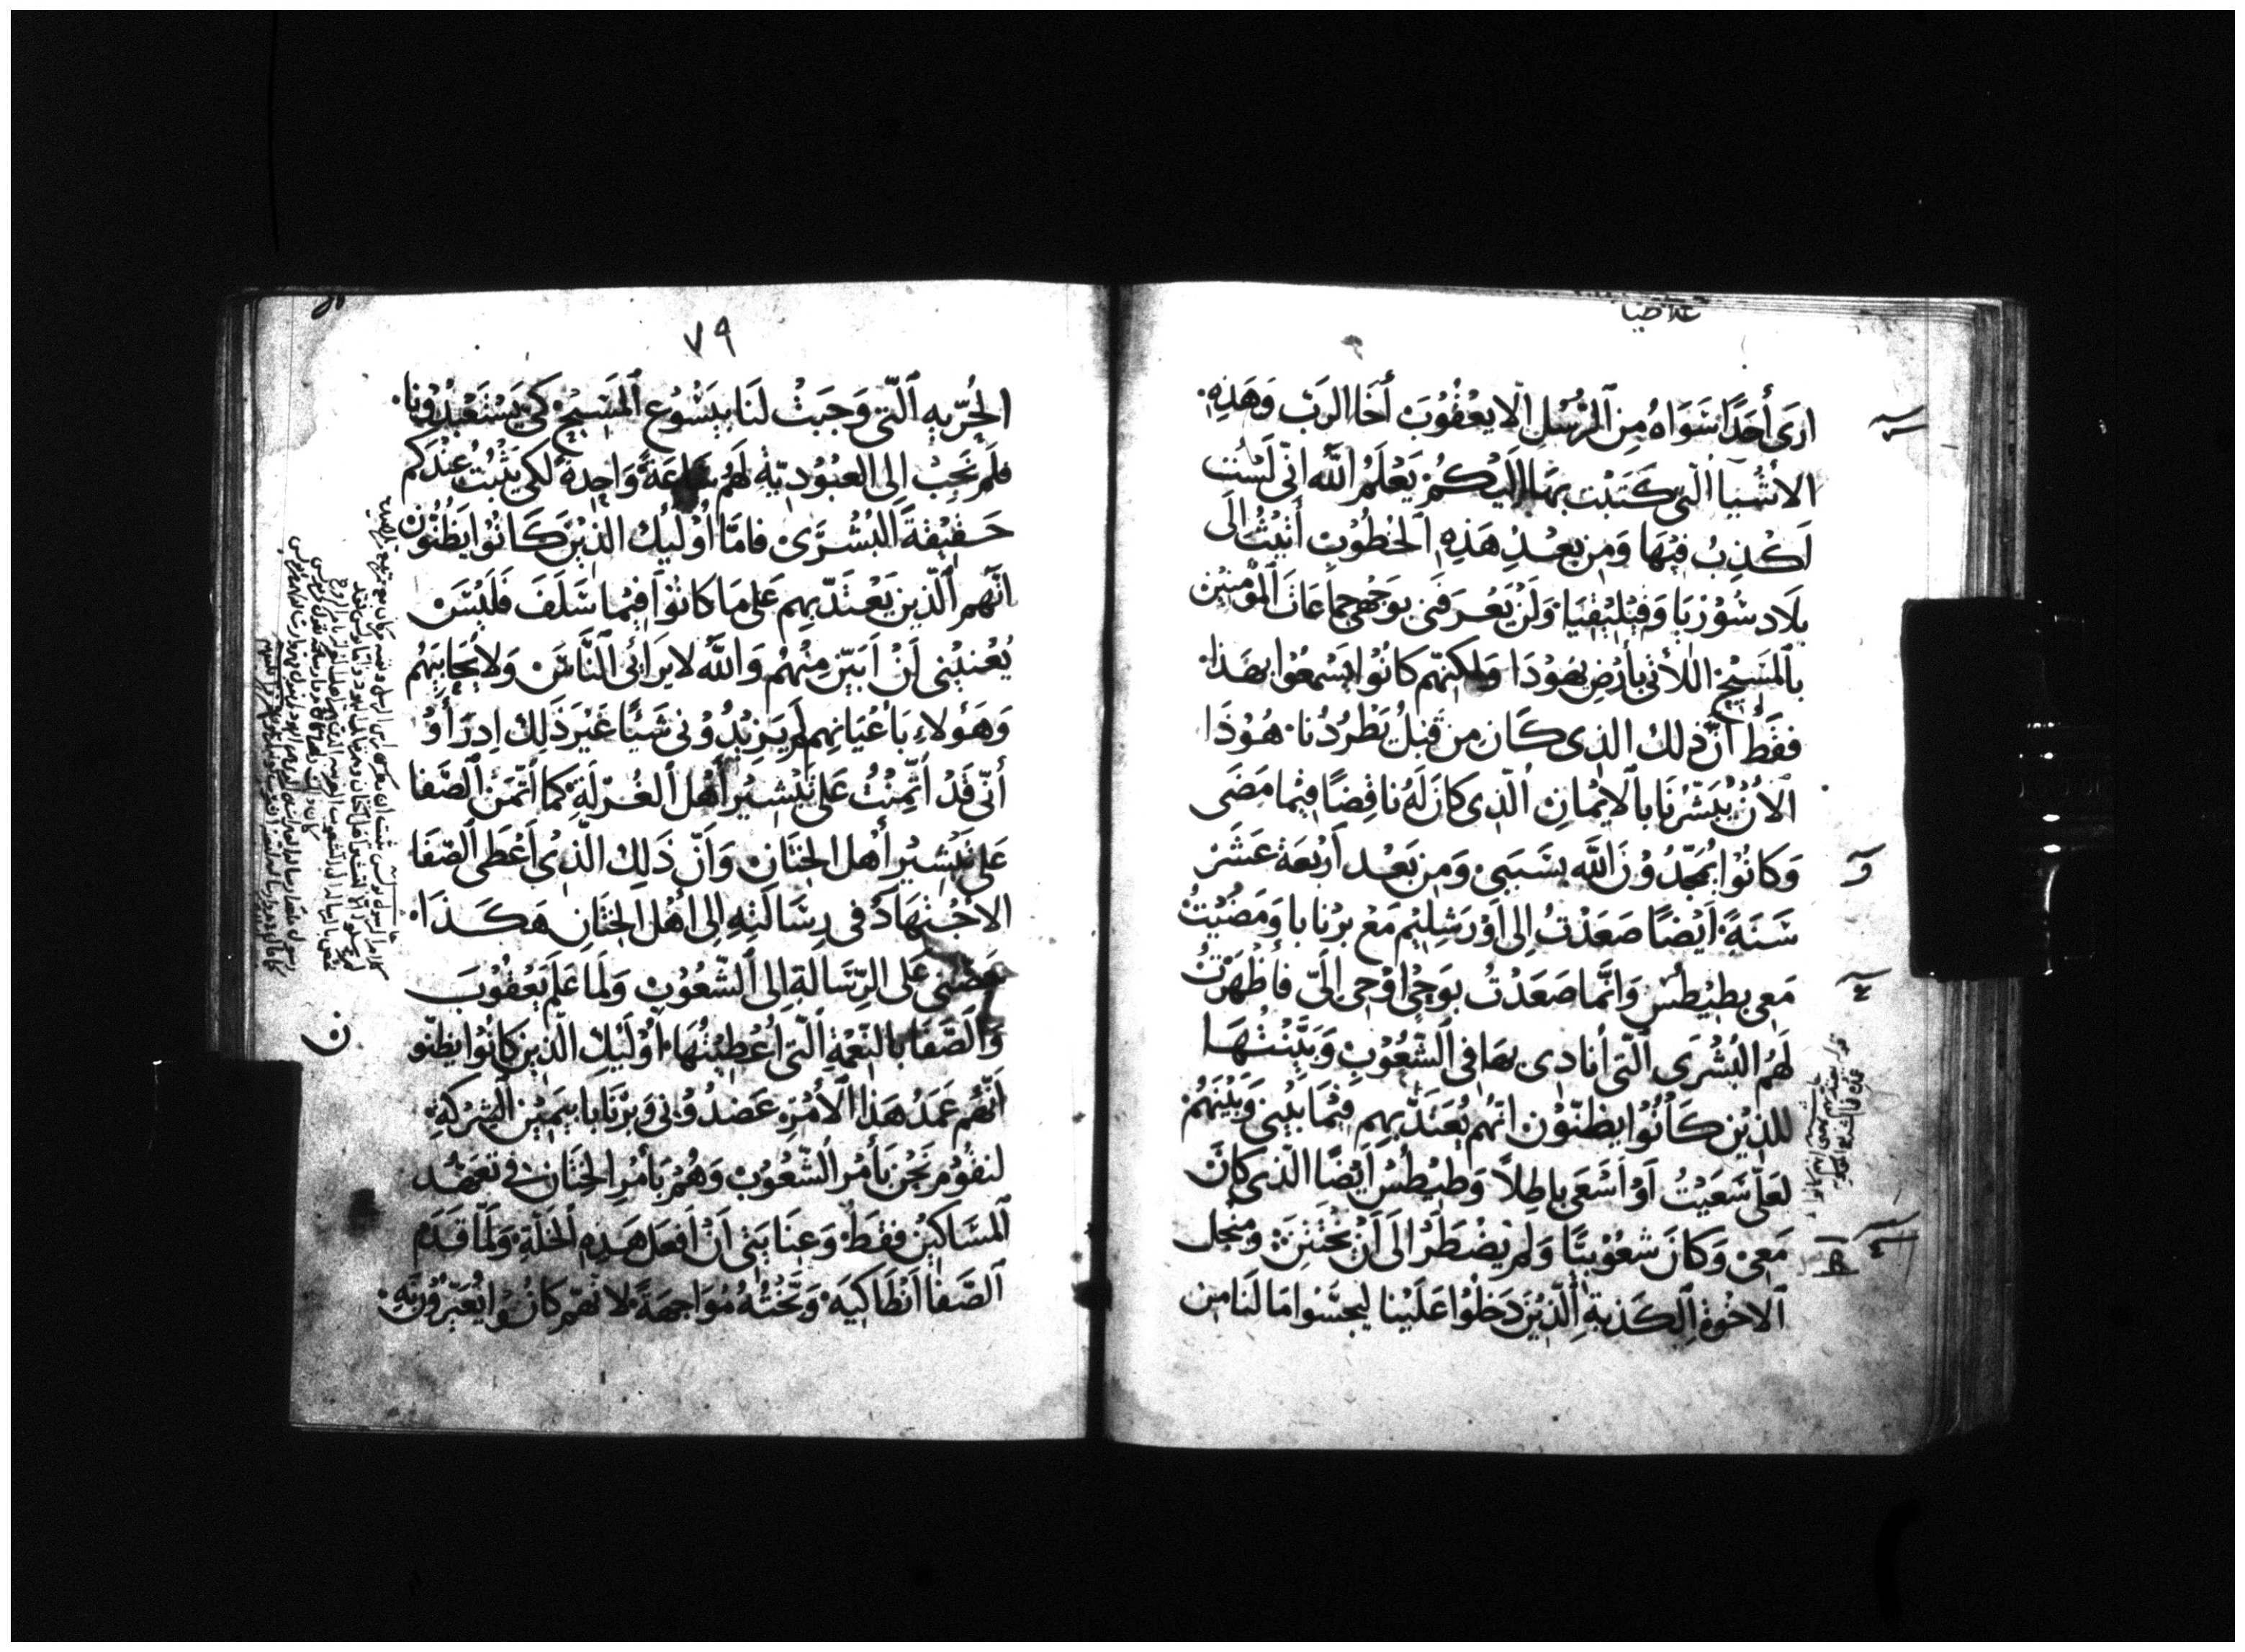 غلاطيا
ارَى أَحَدًا سَوَاهُ مِنَ ٱلرُّسُلِ الّا يعْقُوُبَ أَخَا الرَبّ وَهَذِهِ.
الاشْيَا الّتي كَتَبْت بهَا اِلَيْكُمُ يَعْلَمُ اللَّه انّي لَسْت
اَكْذِبُ فيْهَا وَمن بعْدِ هَذِهِ الخُطُوْبِ أَتَيْتُ الَى
بلَاد سُوْرْيَا وَقيْليْقيَا وَلَنْ يَعْرفَني بوَجْهي جماعَات المؤمنِيْن
بالمَسِيْحِ اللاتي بأرْضِ يهُوْدَا وَلكنّهم كانُوا يَسْمعُوْا بهَذا.
فقَطْ أنّ ذلك الذي كَان من قَبْلُ يَطْرُدُنا. هُوْذَا
الاٰنُ يُبَشّرْنَا بالايْمَانِ الّذي كانَ لَهُ ناقِضًا فيْما مَضَى
وَكانُوا يُمَجّدُوْنَ اللَّه بسَبَبي وَمن بَعْد أَرْبَعَة عَشَرْ
سَنَةً اَيْضًا صَعَدْتُ الى اوْرَشِليْم مَعْ بَرْنابا وَمَضَيْتُ
مَعي بطيْطُسْ وَانّما صَعَدْتُ بوَحْيٍ اوْحي الَيّ فأظْهَرْتُ
لَهُم البُشْرَى الّتي أنادي بهَا في الشّعُوْبِ وَبَيّنْتُهَا
للذيْن كانُوا يظنّوْن انّهُم يُعتَدّ بهِم فيْما بَيْني وَبَيْنَهُمْ
لَعَلّي سَعَيْتُ أَوْ أَسْعَى باطِلًا وَطيْطُسْ اَيْضًا الّذي كانَ
مَعيْ وَكانَ شعُوْبيًّا وَلم يُضْطَرّ الَى أَنْ يخْتَتِن وَمنْجل
الاخْوَة الكَذبة الّذيْن دَخلُوا عَلَيْنا ليَجسّسُوا مَا لَنا من
٧٩
الحُرّيه الّتي وَجَبَتْ لنَا بيَسُوْع المَسِيْح كَي يَسْتَعْبدُوْنا.
فلَم نَجبْ الى العبُوْديّة لَهُم سَاعَةً وَاحِدةً لكي يَثْبُت عنْدكم
حَقيْقةُ البُشْرَى فامّا اُوْليْك الذيْن كانُوا يَظُنّوْن
انّهم الّذين يَعْتَدّ بهم عَلى مَا كانُوْا فيْما سَلَفَ فَلَيْسَ
يُعْنيْني اَنْ اَبيّن منْهُم وَاللَّه لا يَرائي النّاسَ وَلا يحَابيْهُم
وَهَؤلاءِ بأَعْيَانهم لَم يَزيْدُوْني شَيْئًا غَيْرَ ذَلك اذ رَأوُا
أنّي قَدْ أتّمِنْتُ عَلى تَبْشيْر أَهْل الغُرْلَةِ كمَا أتّمنَ الصّفا
عَلى تبْشيْر أَهْل الختَانِ وَانّ ذَلِك الّذي أَعْطى الصّفا
الاجْتهَادَ في رسَالَتهِ الى أهْل الختَان هَكَذا.
عَلى الرّسَالةِ الى الشّعُوْب وَلمَا عَلم يَعْقُوْبَ
وَالصّفَا بالنّعْمَةِ الّتي أعْطيْتُهَا. أوْلَيْك الّذين كانُوا يظنّو
أنّهُم عَمَدُ هَذا الأمْرِ عَضدُوْني وَبرْنَابا بيَميْن الشركَةِ
لنقُوْم نَحْن بأمْر الشّعُوْب وَهُمْ بأمْر الختَان في تعَهُّد
المسَاكيْن فقَطْ وَعنَايَتي أنْ أفْعَل هَذِه الخَلّة وَلَمّا قَدَمَ
الصّفا انْطَاكيَه وَبّخْتُهُ مُوَاجهَةً لانّهم كانُوا يعَيّرُوْنَهِ.